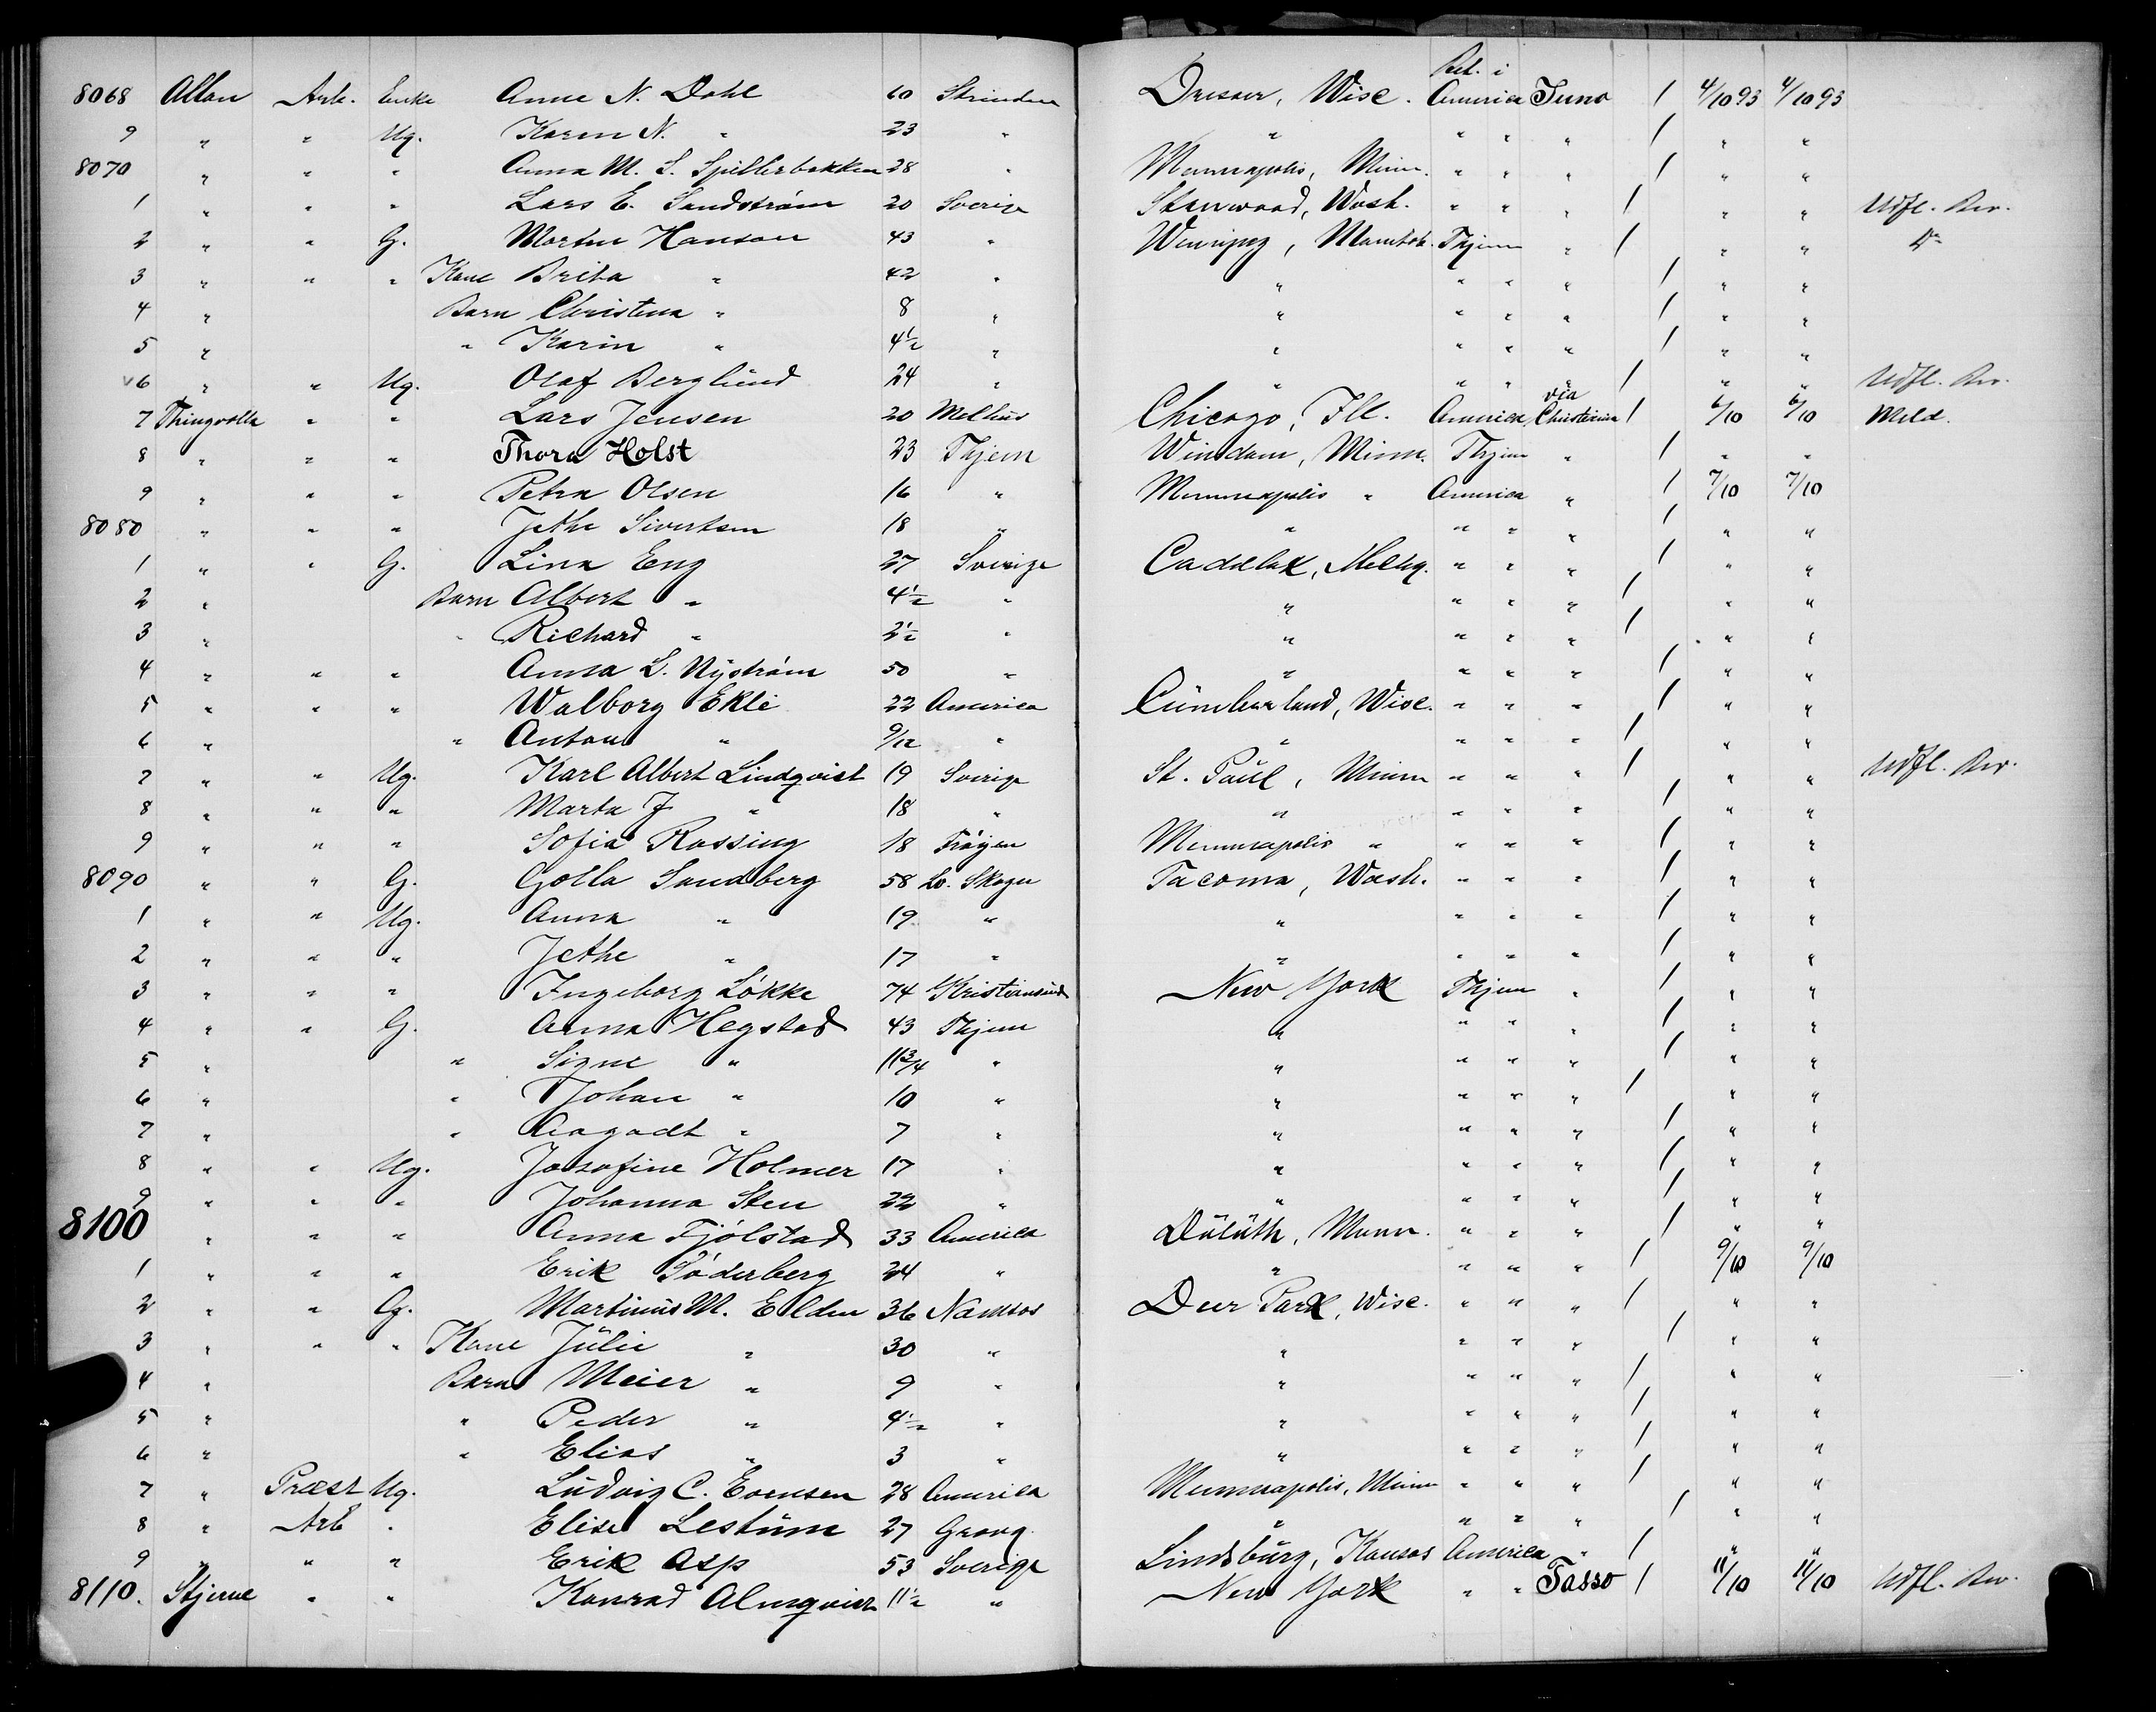 8068 Allan Arb. Enke Anne N. Dahl 60 Strinden Dresser, Wisc. Bet. i America Juno 1 4/10 93 4/10 93
9 " " Ug. Karen N. " 23 " " " " " 1 " "
8070 " " " Anna M. S. Spillerbakken 28 " Minneapolis, Minn. " " " 1 " "
1 " " " Lars E. Sandström 20 Sverige Stanwood, Wash. " " " 1 " " Udfl. Bev.
2 " " G. Morten Hanson 43 " Winnipeg, Manitob. Thjem " 1 " " Do
3 " " " Kone Brita " 42 " " " " " 1 " "
4 " Barn Christina " 8 " " " " " 1 " "
5 " " Karin " 4 1/2 " " " " " 1 " "
6 " " Ug. Olaf Berglund 24 " " " " " 1 " " Udfl. Bev.
7 Thingvalla " " Lars Jensen 20 Melhus Chicago, Ill. America via Christiania 1 6/10 6/10 Meld.
8 " " " Thora Holst 23 Thjem Windom, Minn. Thjem " 1 " "
9 " " " Petra Olsen 16 " Minneapolis " America " 1 7/10 7/10
8080 " " " Jethe Sivertsen 18 " " " " " 1 " "
1 " " G. Lina Eng 27 Sverige Cadelak, Michg. " " " 1 " "
2 " Barn Albert " 4 1/2 " " " " " 1 " "
3 " " Richard " 2 1/2 " " " " " 1 " "
4 " " " Anna L. Nyström 50 " " " " " 1 " "
5 " " " Walborg Ekli 22 America Cumberland, Wisc. " " " 1 " "
6 " " Anton " 9/12 " " " " " 1 " "
7 " " Ug. Karl Albert Lindqvist 19 Sverige St. Paul, Minn " " " 1 " " Udfl. Bev.
8 " " " Marta J " 18 " " " " " 1 " "
9 " " " Sofia Rossing 18 Frøyen Minneapolis " " " " 1 " "
8090 " " G. Golla Sandberg 58 Lv. Skogn Tacoma, Wash. " " " 1 " "
1 " " Ug. Anna " 19 " " " " " 1 " "
2 " " " Jethe " 17 " " " " " 1 " "
3 " " " Ingeborg Løkke 74 Kristiansund New York Thjem " 1 " "
4 " " G. Anna Hegstad 43 Thjem " " " " 1 " "
5 " " Signe " 11 3/4 " " " " " 1 " "
6 " " Johan " 10 " " " " " 1 " "
7 " " Aagodt " 7 " " " " " 1 " "
8 " " Ug. Josofine Holmer 17 " " " " " 1 " "
9 " " " Johanna Sten 22 " " " " " 1 " "
8100 " " " Anna Fjølstad 33 America Duluth, Minn. " " " 1 " "
1 " " " Erik Söderberg 24 " " " " " 1 9/10 9/10
2 " " G. Martinus M. Elden 36 Namsos Deer Park, Wisc. " " " 1 " "
3 " " " Kone Julie " 30 " " " " " 1 " "
4 " Barn Meier " 9 " " " " " 1 " "
5 " " Peder " 4 1/2 " " " " " 1 " "
6 " " Elias " 3 " " " " " 1 " "
7 " Præst Ug. Ludvig C. Evensen 28 America Minneapolis, Minn " " " 1 " "
8 " Arb " Elise Lestum 27 Grong " " " " 1 " "
9 " " " Erik Asp 53 Sverige Lindsburg, Kansas America " 1 " "
8110. Stjerne " " Konrad Almqvist 11 1/2 " New York " " Tasso 1 11/10 11/10 Udfl. Bev.